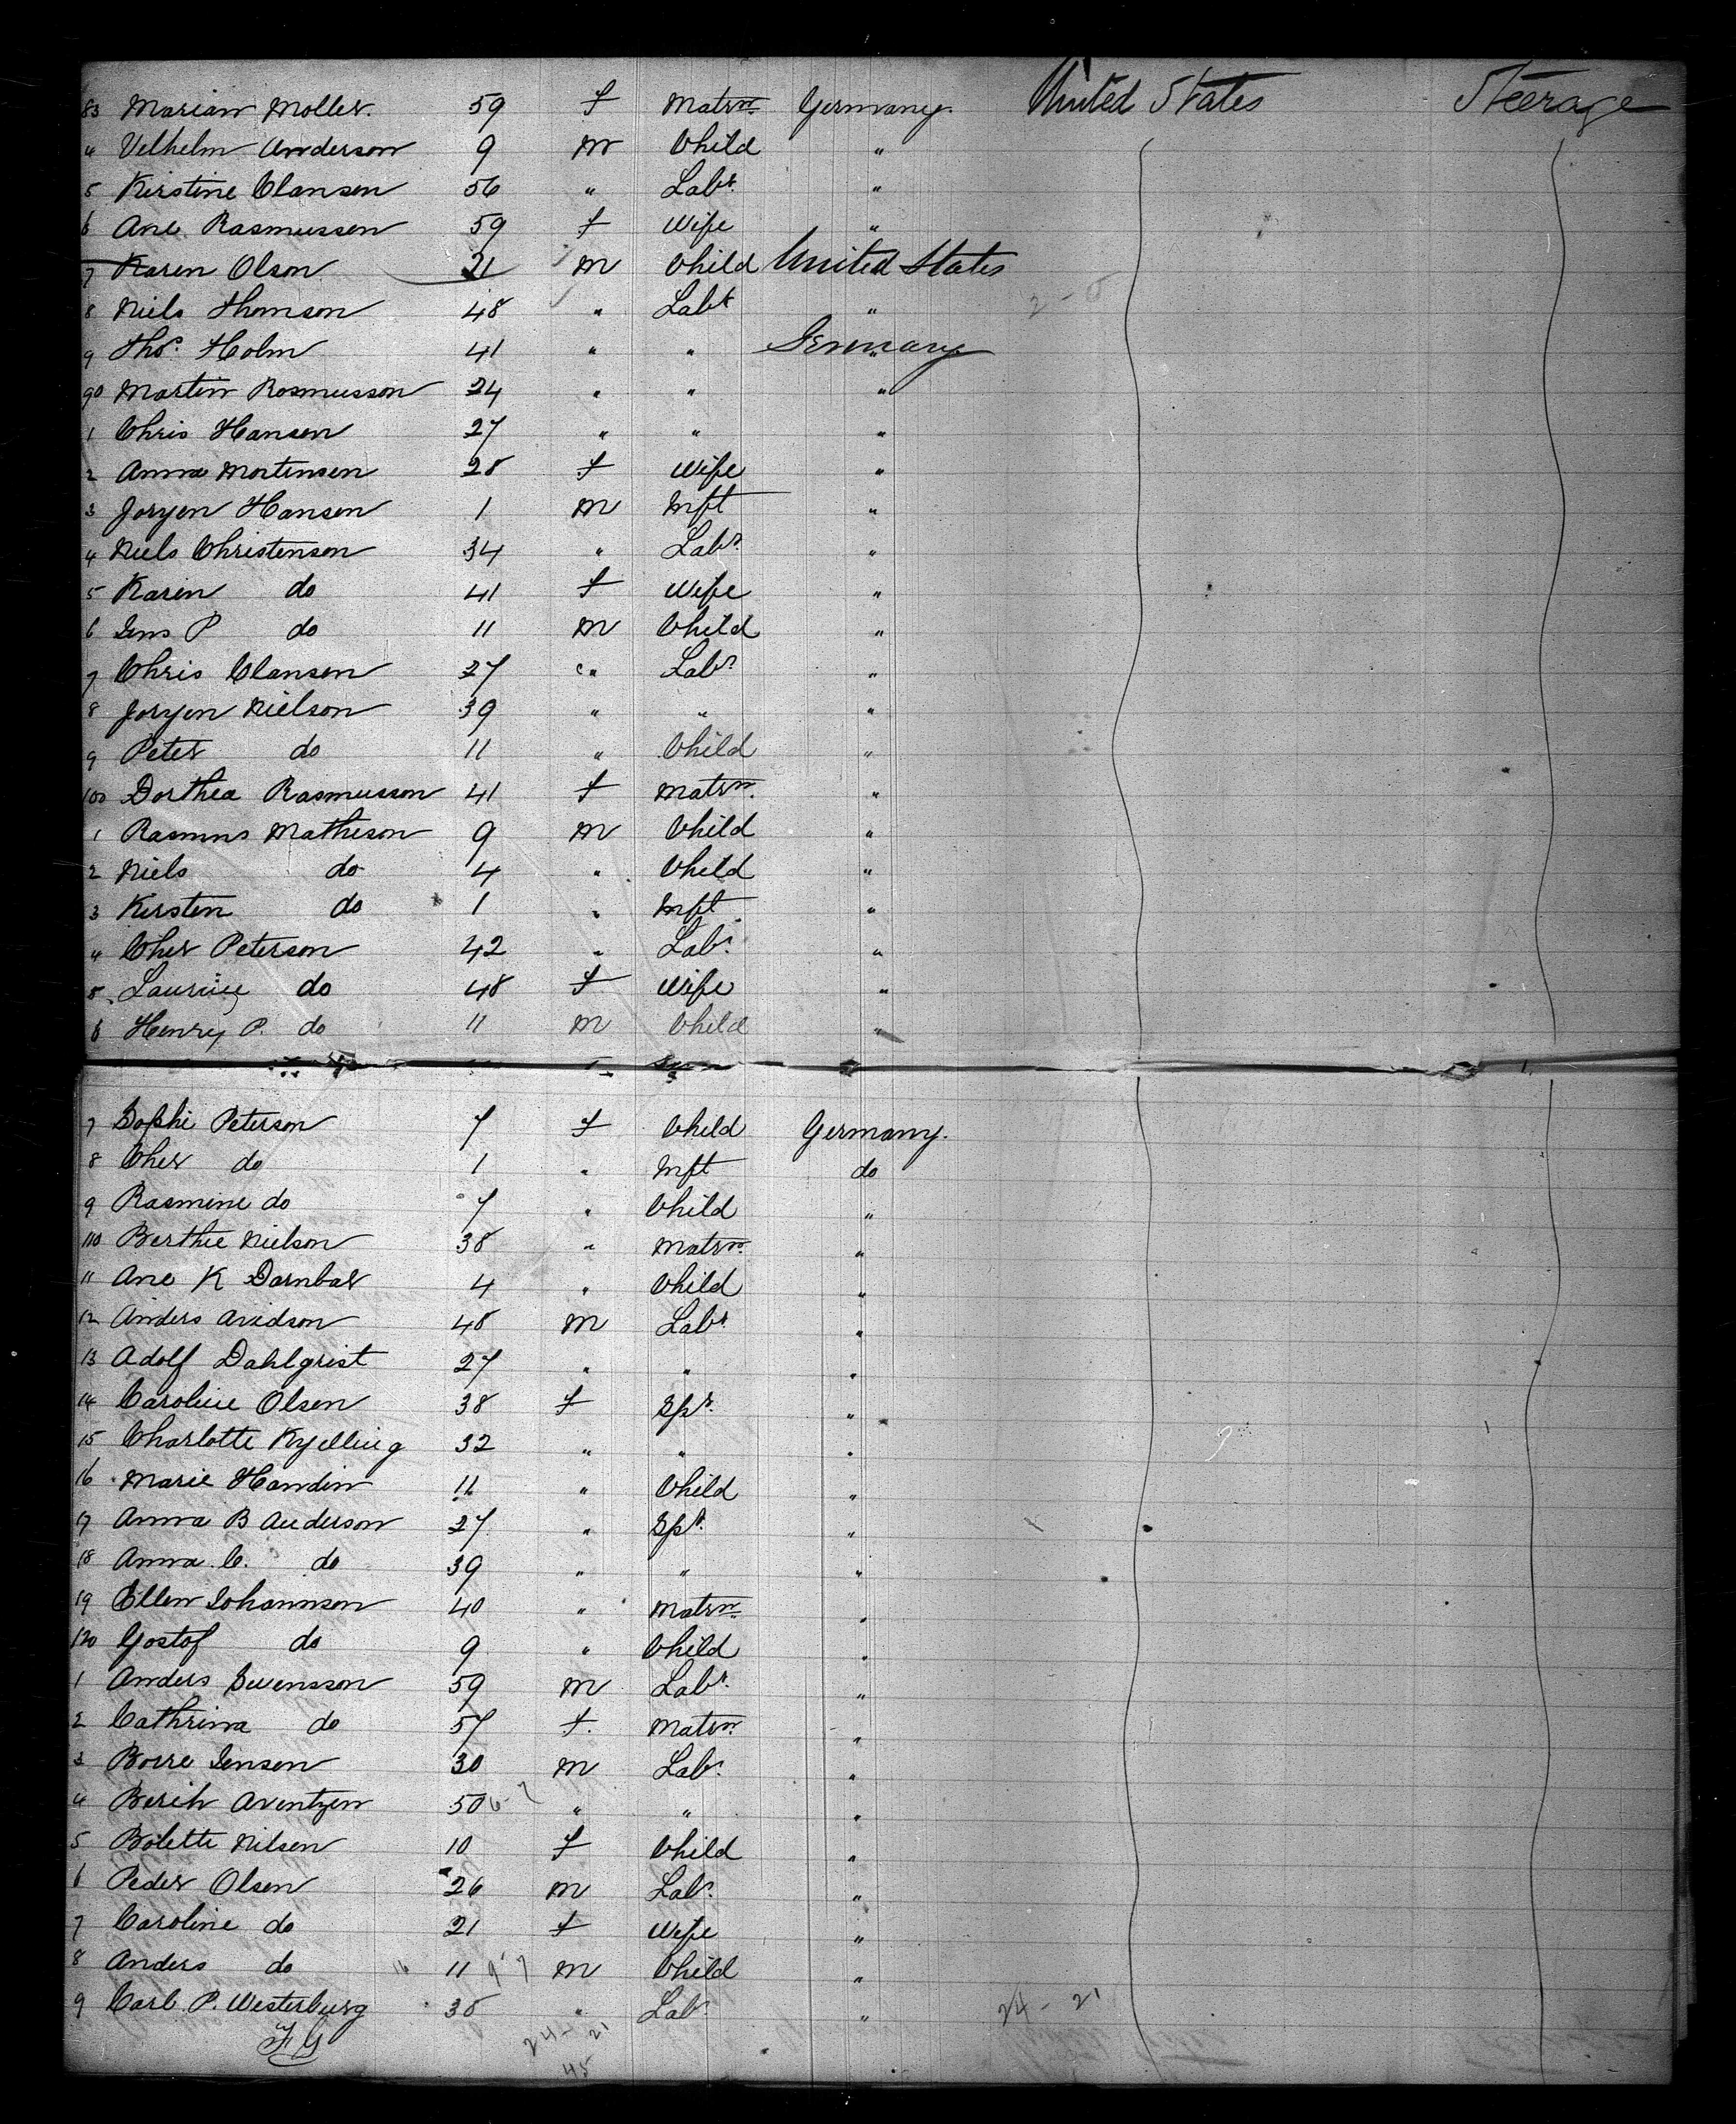 83 Marian Moller. 59 f Matrn. Germany. United States Steerage
4 Velhelm Anderson 9 m Child "
5 Kirstine Clansen 56 " Labr. "
6 Ane Rasmussen 59 f Wife "
7 Karen Olson 21 m Child United States
8 Niels Thomson 48 " Labr "
9 Thos. Holm 41 " " Germany
90 Martin Rasmusson 24 " " "
1 Chris Hansen 27 " " "
2 Anna Mortensen 28 f Wife "
3 Joryen Hansen 1 m Inft "
4 Niels Christenson 34 " Labr. "
5 Karin do 41 f Wife "
6 Jens P do 11 m Child "
7 Chris Clansen 27 " Labr. "
8 Joryen Nielson 39 " " "
9 Peter do 11 " Child "
100 Dorthea Rasmusson 41 f Matrn. "
1 Rasmus Matheson 9 m Child "
2 Niels do 4 " Child "
3 Kirsten do 1 " Inft "
4 Cher Peterson 42 " Labr. "
5 do 48 f Wife "
6 Henry P. do 11 m Child "
7 Sophi Peterson 7 f Child Germany.
8 Cher do 1 " Inft do
9 Rasmine do 7 " Child "
110 Berthe Nielson 38 " Matrn. "
11 Ane K Dambar 4 " Child "
12 Anders Aridson 48 m Labr. "
13 Adolf Dahlgrist 27 " " "
14 Caroline Olsen 38 f Spr. "
15 Charlotte Kyelling 32 " " "
16 Marie Handin 11 " Child "
17 Anna B Anderson 27 " Spr. "
18 Anna C. do 39 " " "
19 Ellen Johannson 40 " Matrn. "
120 Gostof do 9 " Child "
1 Anders Swensson 59 m Labr. "
2 Cathrina do 57 f. Matrn. "
3 Borre Jensen 30 m Labr. "
4 Berih Arentzen 50 " " "
5 Bolette Nilsen 10 f Child "
6 Peder Olsen 26 m Labr. "
7 Caroline do 21 f Wife "
8 Anders do 11 m Child "
9 Carl P. Westerburg 38 " Labr. " 24 - 21
24 - 21
45